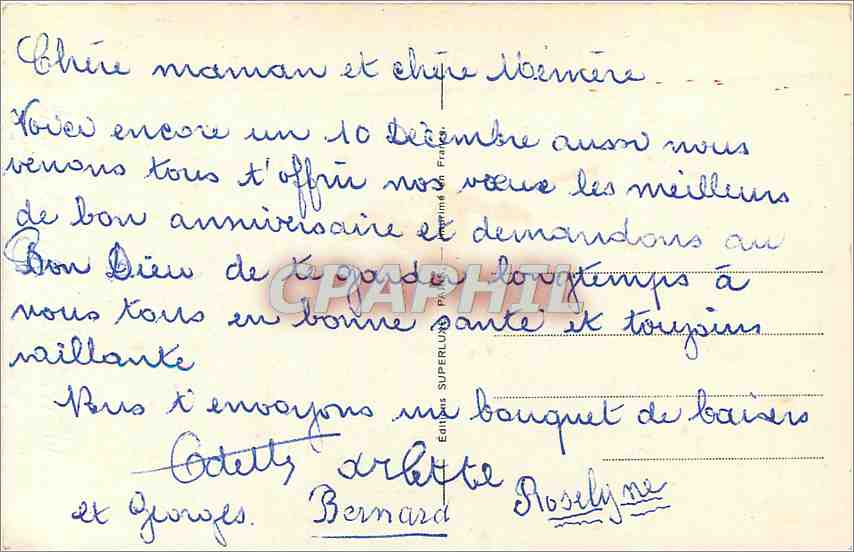 Chère maman et chère Mémère...
Voici encore un 10 Décembre aussi nous
venons tous t'offrir nos vœux les meilleurs
de bon anniversaire et demandons au
Bon Dieu de te garder longtemps à
nous tous en bonne santé et toujours
vaillante
Nous t'envoyons un bouquet de baisers
Odette Arlette
et Georges. Bernard Roselyne
Editions SUPERLUXE PARIS — Imprimé en France.
CPAPHIL